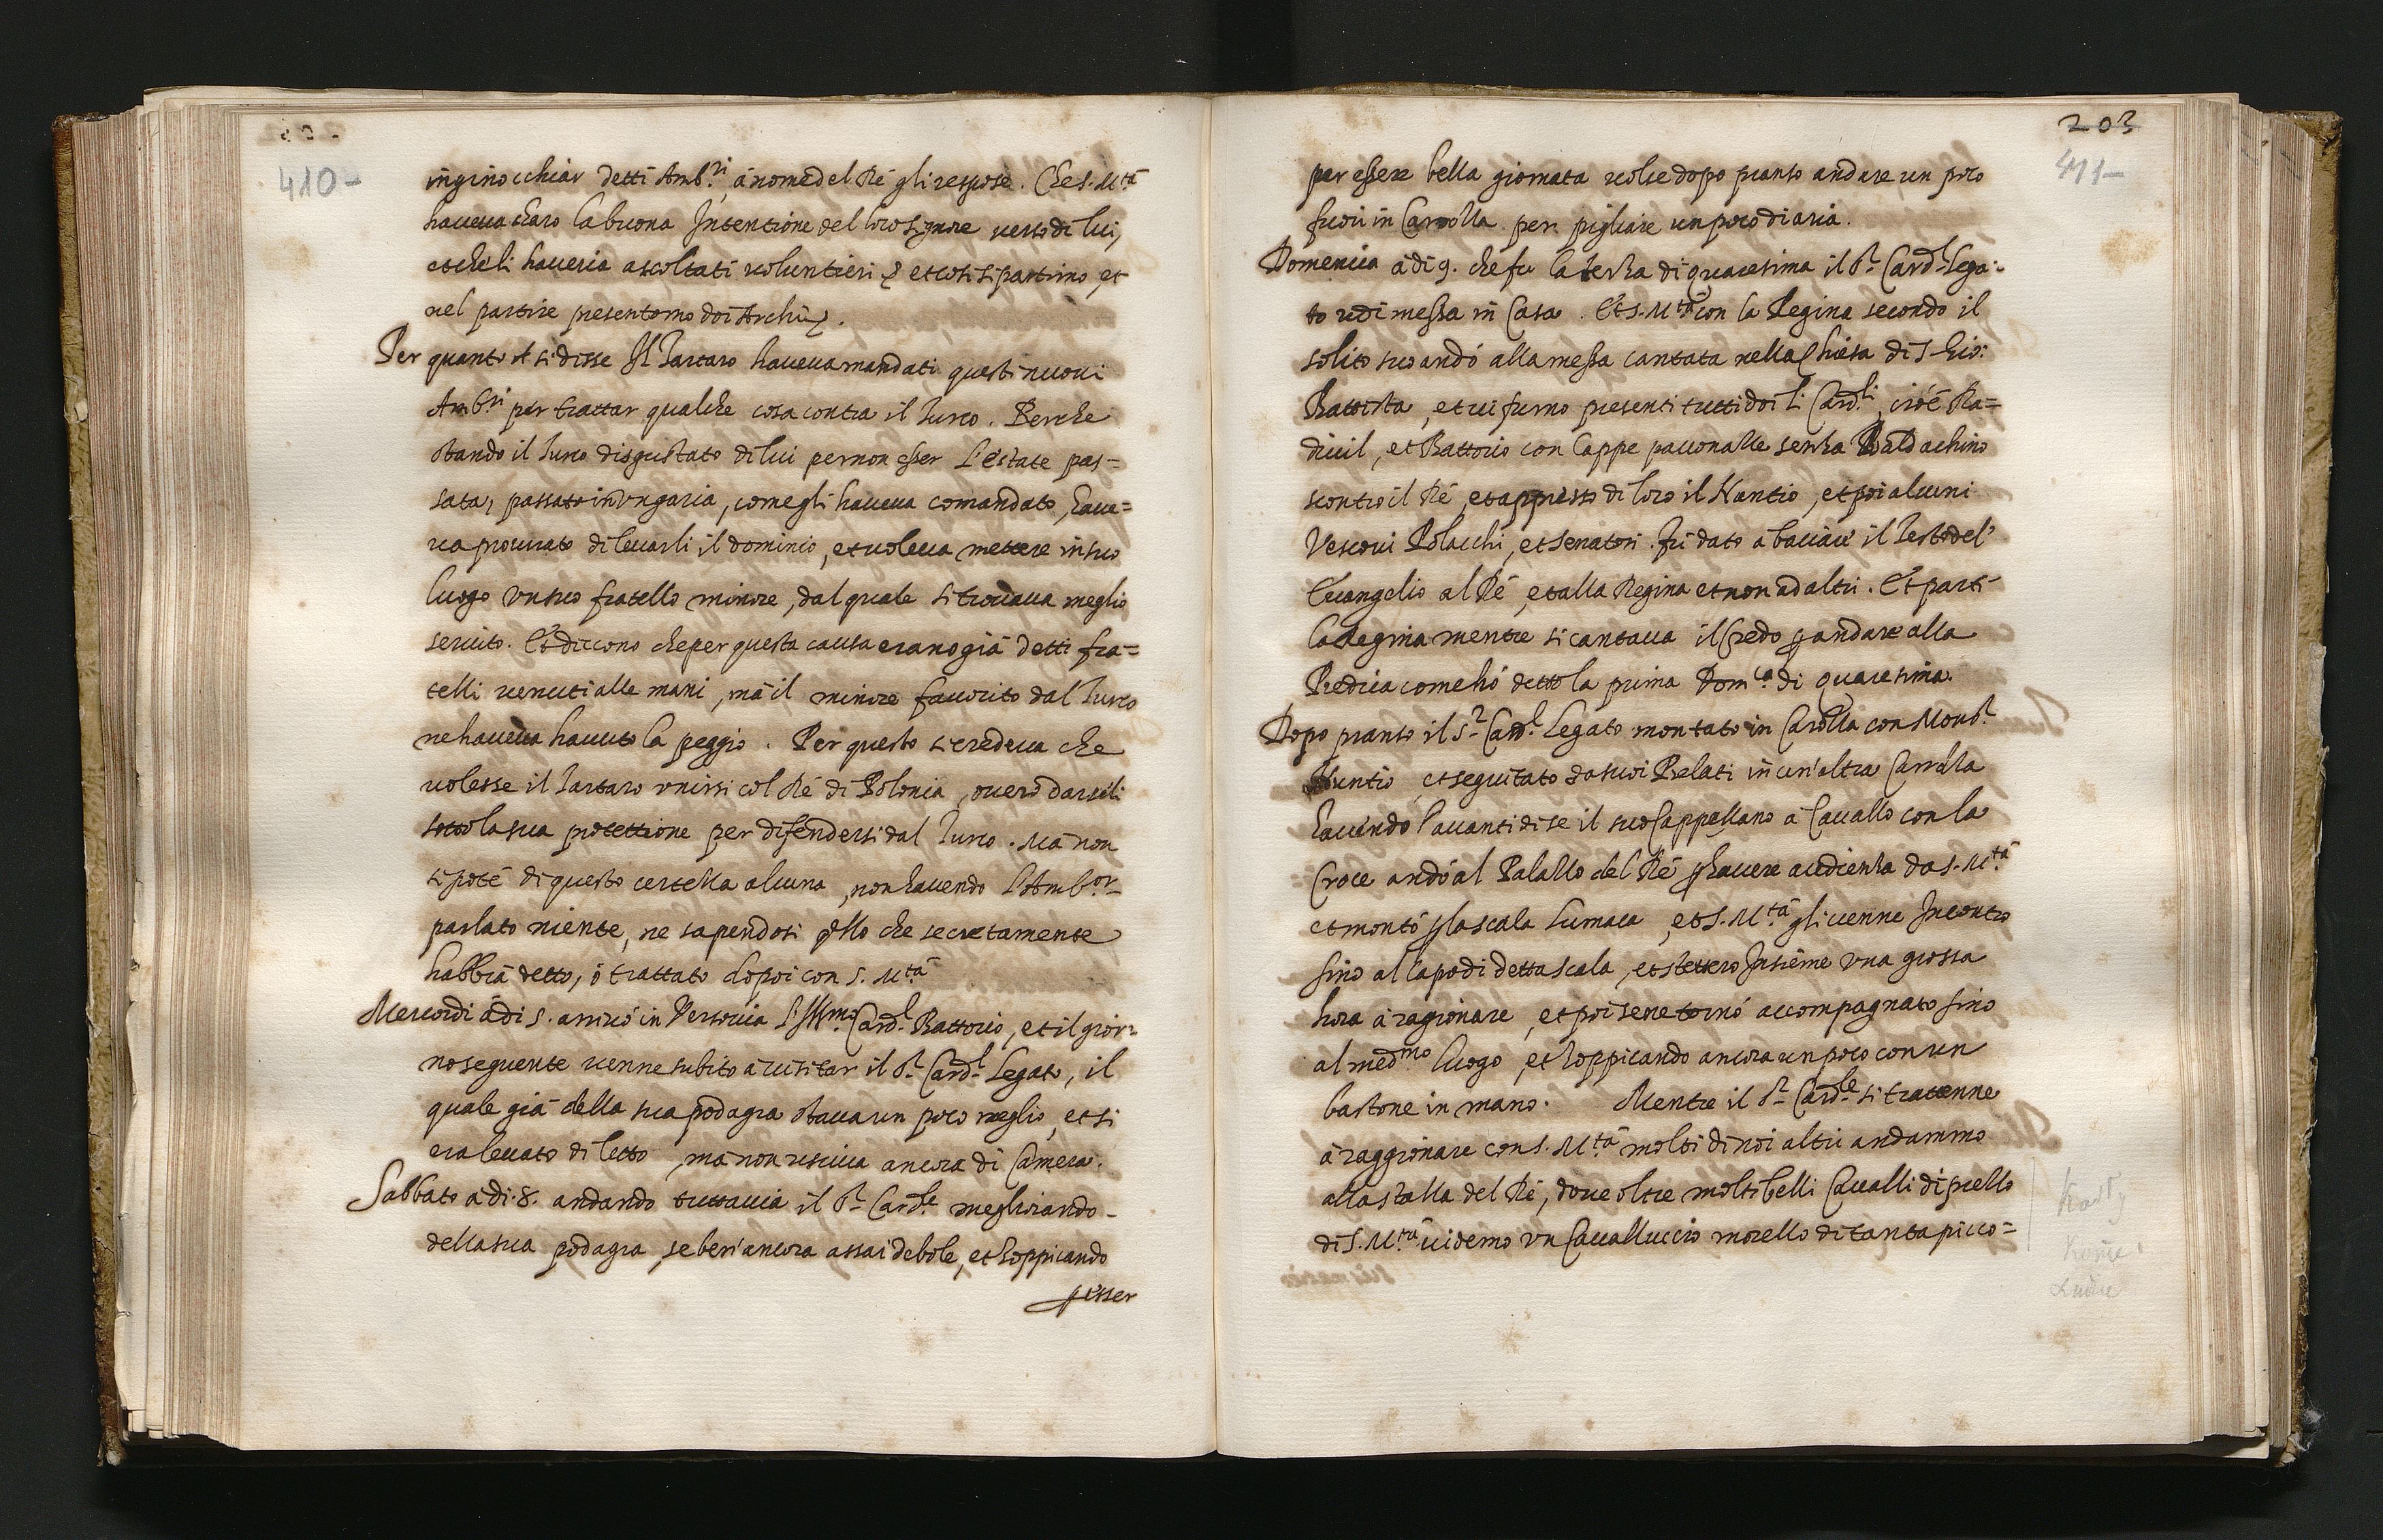 410-
inginocchiar detti Amb.ri à nome del Ré gli respose. Che S. M.tà
haveua charo la buona Intentione del loro signore verso di lui,
et che li haueria ascoltati uoluntieri et così si partirno et
nel partire presentorno doi Archi.
Per quanto si disse Il Tartaro haueua mandati questi nuoui
Amb.ri per trattar qualche cosa contra il Turco. Perche
stando il Turco disgustato di lui per non esser l'estate pas=
sata, passato in Vngaria, come gli haueua comandato, haue=
ua procurato di leuarli il dominio, et uoleua mettere in suo
luogo vn suo fratello minore, dal quale si trouaua meglio
seruito. Et diccono che per questa causa erano già detti fra=
telli uenuti alle mani, mà il minore fauorito dal Turco
ne haueua hauuto la peggio. Per questo si credeua che
uolesse il Tartaro vnirsi col Ré di Polonia, ouero darseli
sotto la sua protettione per difendersi dal Turco. Mà non
si poté di questo certezza alcuna, non hauendo l'Amb.or
parlato niente, ne sapendosi qllo che secretamente
habbia detto, ò trattato dopoi con S. M.tà
Mercordi à di 5. arriuó in Versouia l'Ill.mo Card.l Battorio, et il gior=
no seguente uenne subito à uisitar il S.r Card.l Legato, il
quale già della sua podagra staua un poco meglio, et si
era leuato di letto, mà non usciua ancora di Camera.
Sabbato à di. 8. andando tuttauia il S.r Card.le megliorando
della sua podagra, se ben' ancora assai debole, et zoppicando
p esser
203
411-
per essere bella giornata uolse dopo pranso andare un poco
fuori in Carrozza per pigliare un poco di aria.
Domenica à di 9. che fu la terza di quaresima il S.r Card.l Lega=
to udi messa in Casa. Et S. M.tà con la Regina secondo il
solito suo andó alla messa cantata nella Chiesa di S. Gio:
Battista, et ui furno presenti tutti doi li Card.li, cioé Ra=
diuil, et Battorio con Cappe pauonazze senza Baldachino
scontro il Ré, et appresso di loro il Nuntio, et poi alcuni
Vescoui Polacchi, et senatori. Fu dato à baciare il Testo del'
Euangelio al Ré, et alla Regina et non ad altri. Et parti
la Regina mentre si cantaua il Credo p andare alla
Predica come hó detto la prima Dom.ca di quaresima.
Dopo pranso il S.r Card.l Legato montato in Carozza con Mons.r
Nuntio, et seguitato da suoi Prelati in un'altra Carrozza
hauendo l'auanti di se il suo Cappellano à Cauallo con la
Croce andó al Palazzo del Ré p hauere audienza da S. M.tà
et montó p la scala lumaca, et S. M.tà gli uenne Incontro
sino al capo di detta scala, et stettero Insieme vna grossa
hora à ragionare, et poi se ne tornó accompagnato sino
al med.mo luogo, et zoppicando ancora un poco con un
bastone in mano. Mentre il S.r Card.le si trattenne
à raggionare con S. M.tà molti di noi altri andammo
alla stalla del Ré, doue oltre molti belli Caualli di prezzo
di S. M.tà uidemo vn Caualluccio morello di tanta picco=